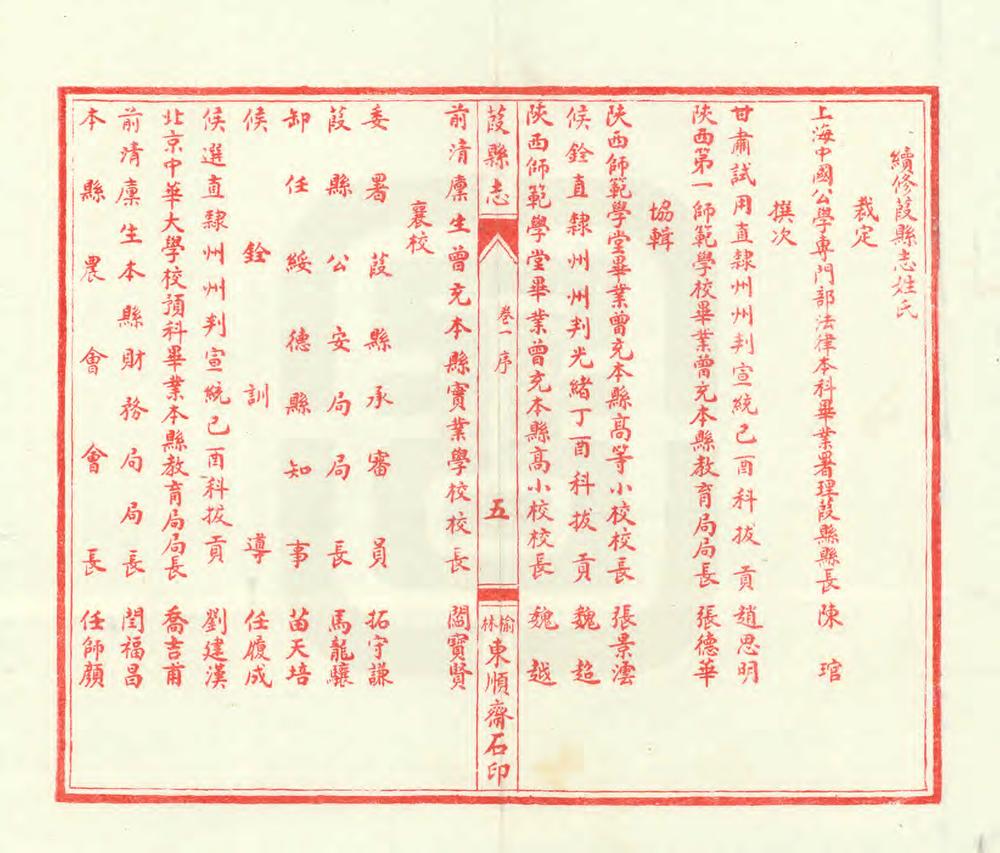 續修葭縣志姓氏
裁定
上海中國公學專門部法律本科畢業署理葭縣縣長陳琯
撰次
甘肅試用直隸州州判宣統己酉科拔貢趙思明
陝西第一師範學校畢業曾充本縣教育局局長張德華
協輯
陝西師範學堂畢業曾充本縣高等小校校長張景澐
候銓直隸州州判光緒丁酉科拔貢魏超
陝西師範學堂畢業曾充本縣高小校校長魏越
葭縣志
卷一 序
五
榆林東順齋石印
前清廩生曾充本縣實業學校校長閻寶賢
襄校
委署葭縣承審員拓守謙
葭縣公安局局長馬龍驤
卸任綏德縣知事苗天培
候銓訓導任履成
候選直隸州州判宣統己酉科拔貢劉建漢
北京中華大學校預科畢業本縣教育局局長喬吉甫
前清廩生本縣財務局局長閆福昌
本縣農會會長任師顏